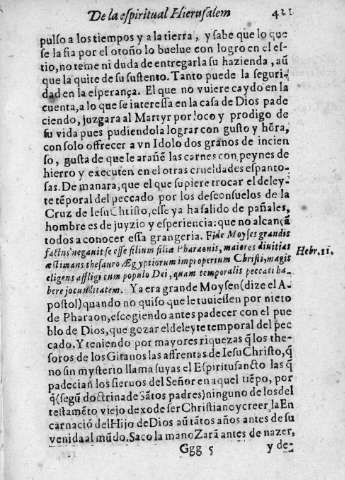 De la espiritual Hierusalem 421
pulso a los tiempos y a la tierra, y sabe que lo que
se la fia por el otoño lo buelue con logro en el es-
tio, no teme ni duda de entregarla su hazienda, aũ
que la quite de su sustento. Tanto puede la seguri-
dad en la esperança. El que no vuiere caydo en la
cuenta, a lo que se interessa en la casa de Dios pade
ciendo, juzgara al Martyr por loco y prodigo de
su vida pues pudiendola lograr con gusto y hõra,
con solo offrecer a vn Idolo dos granos de incien
so, gusta de que le arañẽ las carnes con peynes de
hierro y executen en el otras crueldades espanto-
sas. De manara, que el que supiere trocar el deley-
te tẽporal del peccado por los desconsuelos de la
Cruz de Iesu Christo, esse ya ha salido de pañales,
hombre es de juyzio y esperiencia: que no alcançã
todos a conocer esta grangeria. Fide Moyses grandis
factus negauit se esse filium filiæ Pharaonis, maiores diuitias
æstimans thesauro Ægyptiorum improperium Christi, magis
eligens affligi cum populo Dei, quam temporalis peccati ha-
bere jocunditatem. Ya era grande Moysen (dize el A-
postol) quando no quiso que le tuuiessen por nieto
de Pharaon, escogiendo antes padecer con el pue
blo de Dios, que gozar el deleyte temporal del pec
cado. Y teniendo por mayores riquezas q̃ los the-
soros de los Gitanos las affrentas de Iesu Christo, q̃
no sin mysterio llama suyas el Espiritu sancto las q̃
padecian los sieruos del Señor en aquel tiẽpo, por
q̃ (segũ doctrina de sãtos padres) ninguno de los del
testamẽto viejo dexo de ser Christiano y creer la En
carnació del Hijo de Dios aũ tãtos años antes de su
venida al mũdo. Saco la mano Zarã antes de nazer,
Ggg 5 y de
Hebr. 11.